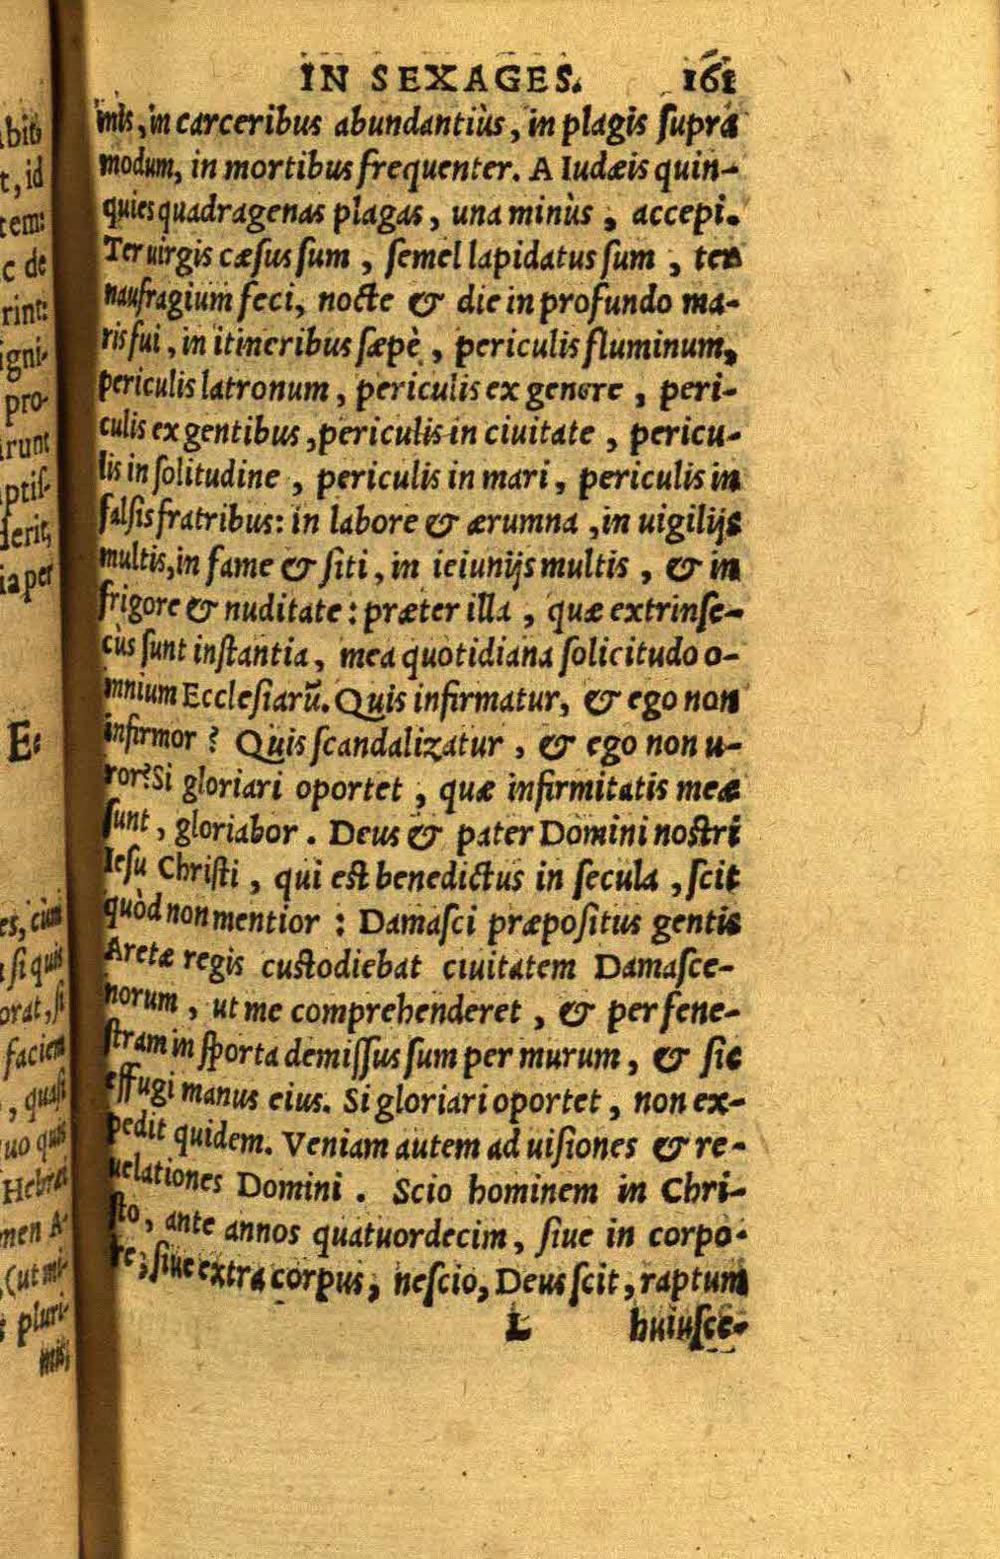 IN SEXAGES. 161
mis, in carceribus abundantiùs, in plagis supra
modum, in mortibus frequenter. A Iudæis quin-
quies quadragenas plagas, una minùs, accepi.
Ter uirgis cæsus sum, semel lapidatus sum, ter
naufragium feci, nocte & die in profundo ma-
ris fui, in itineribus sæpè, periculis fluminum,
periculis latronum, periculis ex genere, peri-
culis ex gentibus, periculis in ciuitate, pericu-
lis in solitudine, periculis in mari, periculis in
falsis fratribus: in labore & ærumna, in uigilijs
multis, in fame & siti, in ieiunijs multis, & in
frigore & nuditate: præter illa, quæ extrinse-
cùs sunt instantia, mea quotidiana solicitudo o-
mnium Ecclesiarũ. Quis infirmatur, & ego non
infirmor? Quis scandalizatur, & ego non u-
ror? Si gloriari oportet, quæ infirmitatis meæ
sunt, gloriabor. Deus & pater Domini nostri
Iesu Christi, qui est benedictus in secula, scit
quòd non mentior: Damasci præpositus gentis
Aretæ regis custodiebat ciuitatem Damasce-
norum, ut me comprehenderet, & per fene-
stram in sporta demissus sum per murum, & sic
effugi manus eius. Si gloriari oportet, non ex-
pedit quidem. Veniam autem ad uisiones & re-
uelationes Domini. Scio hominem in Chri-
sto, ante annos quatuordecim, siue in corpo-
re, siue extra corpus, nescio, Deus scit, raptum
L huiusce-
bit
t, id
tem:
c de
rint:
igni-
pro-
irunt
ptis-
derit,
ia per
E:
es, cùm
si quis
orat, si
facien
, quasi
uo quis
Hebræi
men A-
(ut mi-
pluri-
mis,